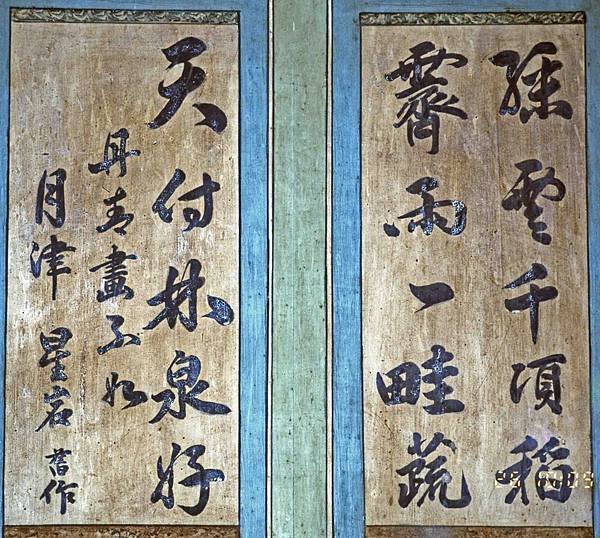 綠雲千頃稻
霽雨一畦蔬
天付林泉好
丹青畫不如
月津 星岩 作